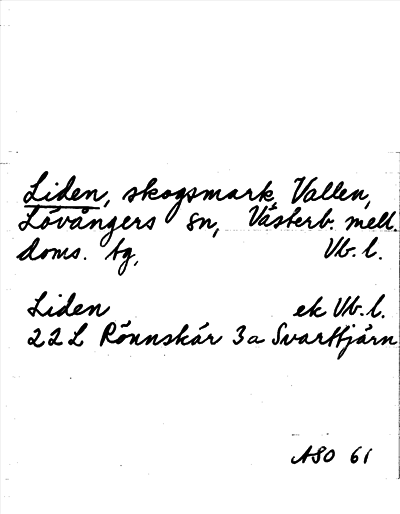 Liden, skogsmark, Vallen,
Lövångers sn, Västerb. mell.
doms. tg, Vb. l.
Liden ek Vb. l.
22 L Rönnskär 3a Svarttjärn
ASO 61